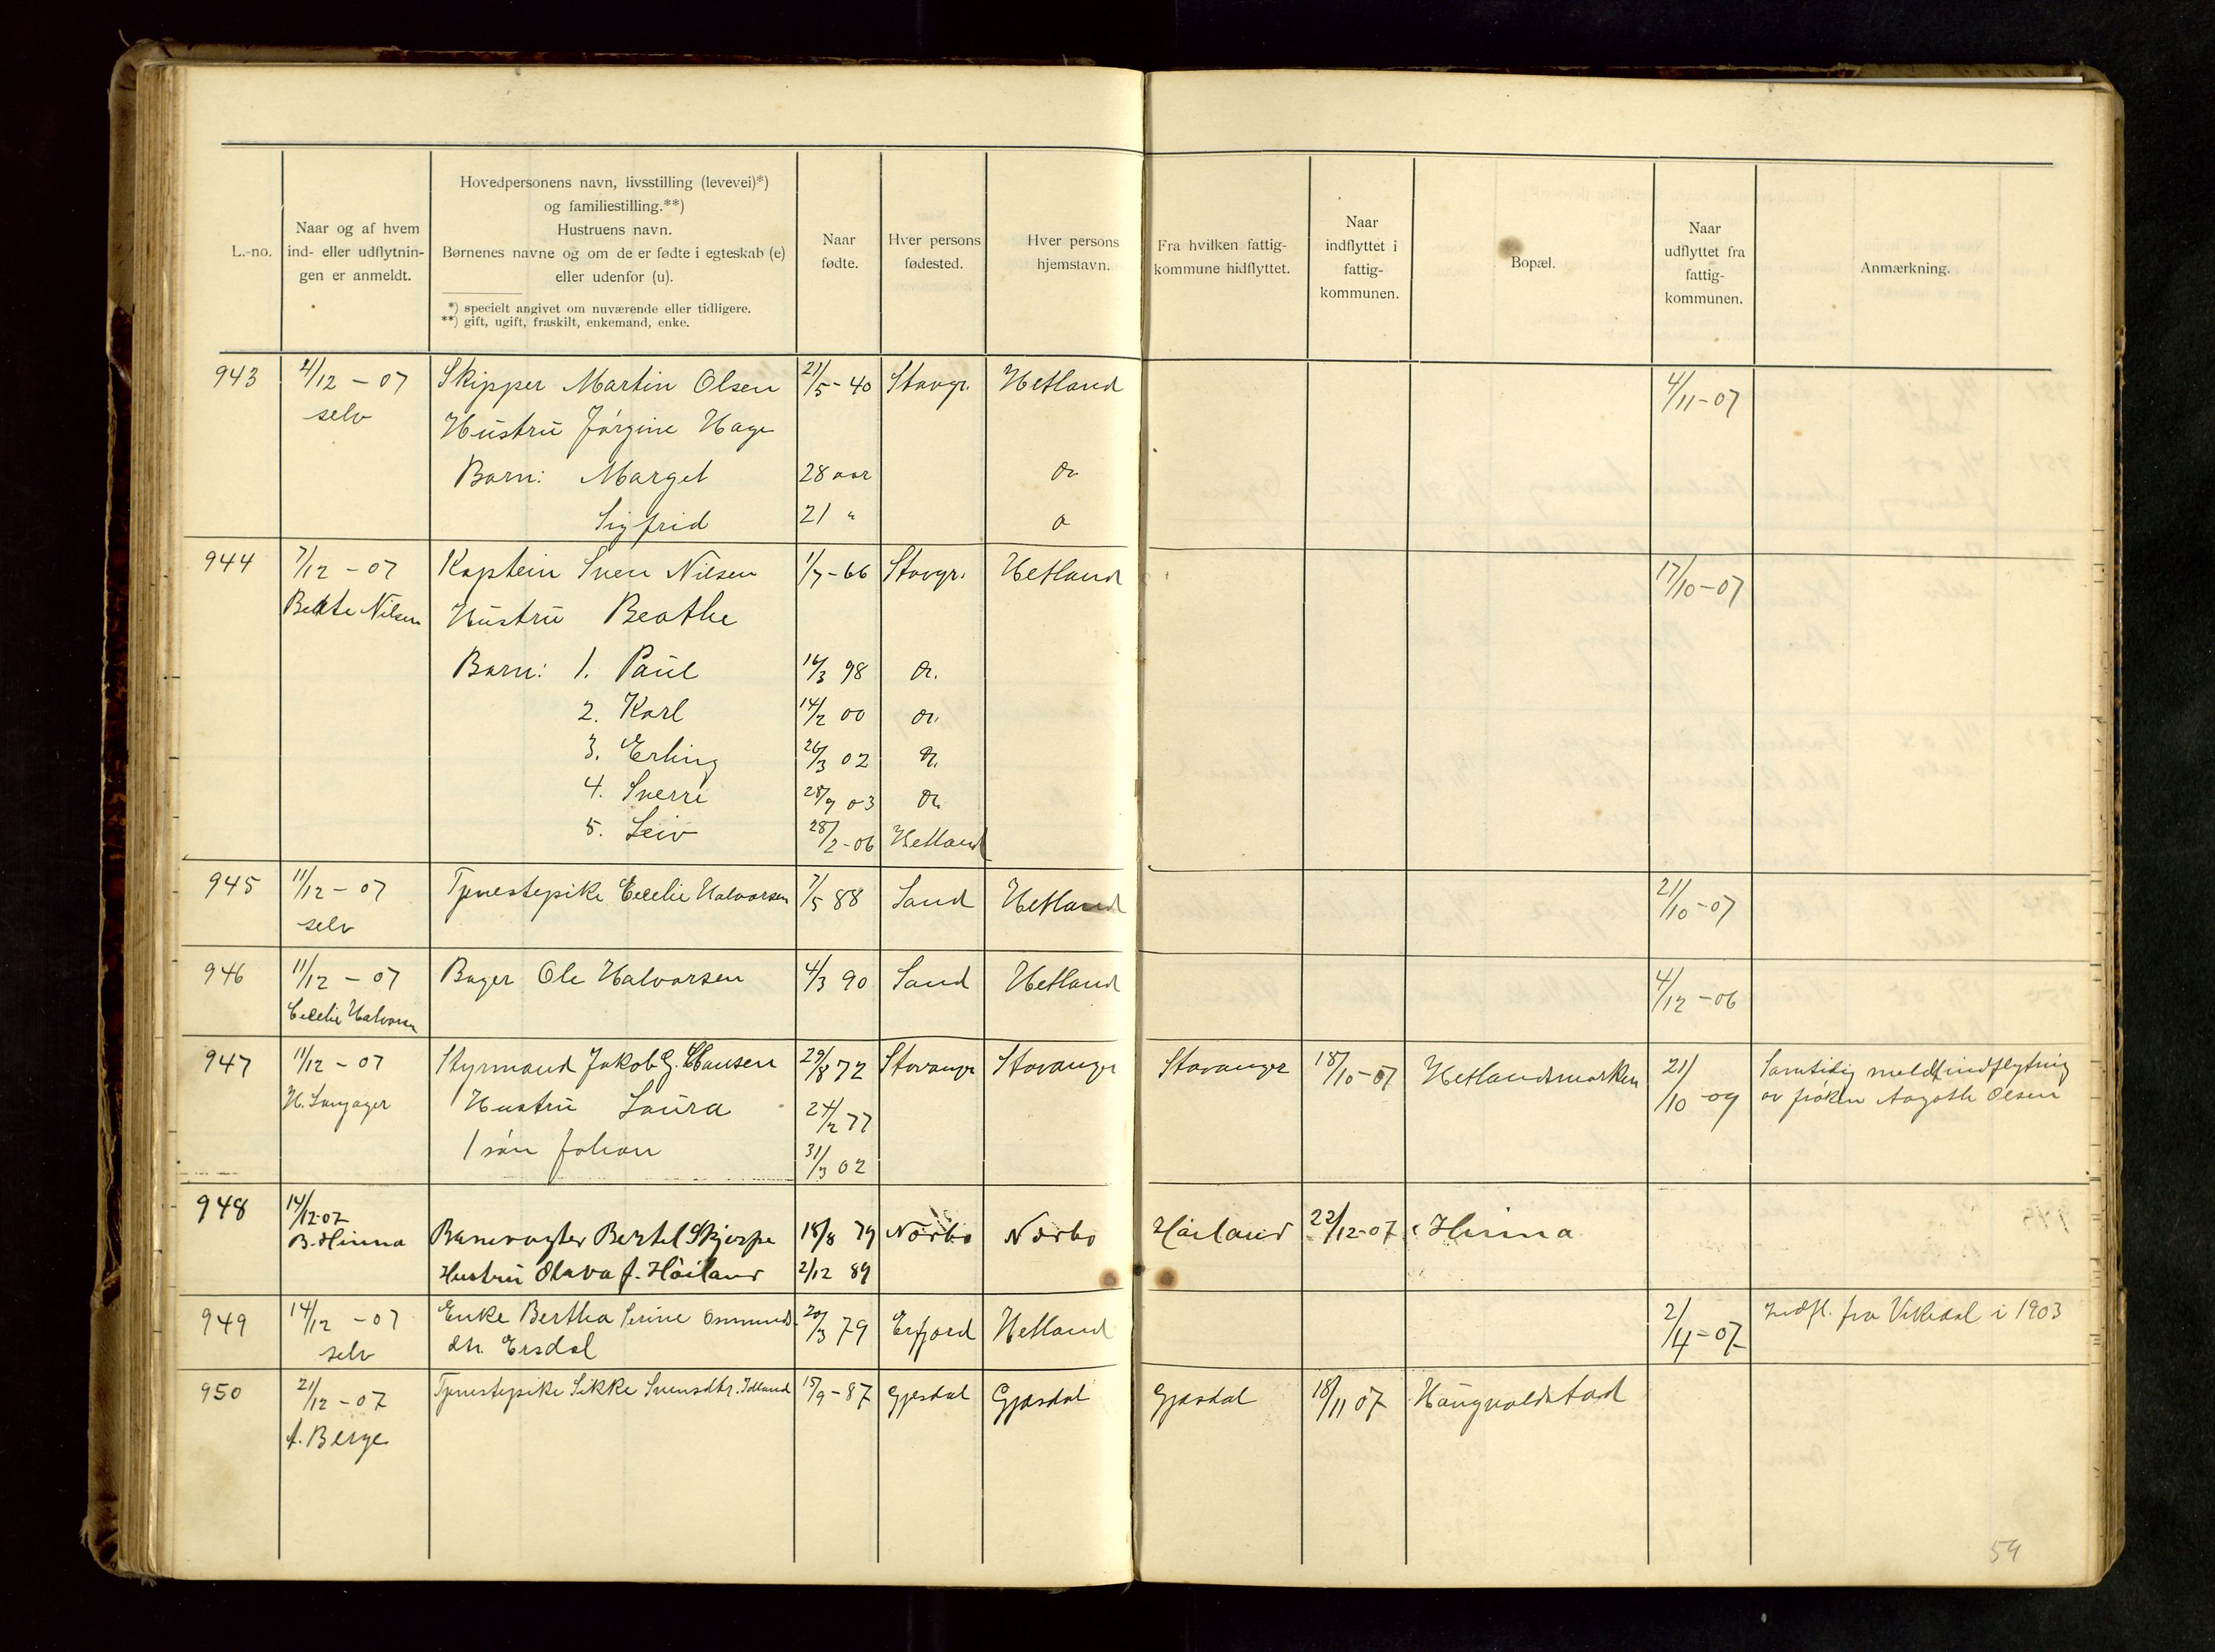 L.-no.
Naar og af hvem
ind- eller udflytnin-
gen er anmeldt.
Hovedpersonens navn, livsstilling (levevei)*)
og familiestilling.**)
Hustruens navn.
Børnenes navne og om de er fødte i egteskab (e)
eller udenfor (u).
*) specielt angivet om nuværende eller tidligere.
**) gift, ugift, fraskilt, enkemand, enke.
Naar
fødte.
Hver persons
fødested.
Hver persons
hjemstavn.
Fra hvilken fattig-
kommune hidflyttet.
Naar
indflyttet i
fattig-
kommunen.
Bopæl.
Naar
udflyttet fra
fattig-
kommunen.
Anmærkning.
943 4/12 - 07 Skipper Martin Olsen 21/5-40 Stavgr. Hetland 4/11-07
selv Hustru Jörgine Hage
Barn: Marget 28 aar do
Sigfrid 21 " do
944 7/12 - 07 Kaptein Sven Nilsen 1/7-66 Stavgr. Hetland 17/10-07
Beate Nilsen Hustru Beathe
Barn: 1. Paul 16/3 98 do.
2. Karl 14/2 00 do.
3. Erling 26/3 02 do.
4. Sverre 28/9 03 do.
5. Leiv 28/2-06 Hetland
945 11/12 - 07 Tjenestepike Cecelie Halvorsen 7/5 88 Sand Hetland 21/10-07
selv
946 11/12 - 07 Bager Ole Halvorsen 4/3 90 Sand Hetland 4/12-06
Cecelie Halvorsen
947 11/12 - 07 Styrmand Jakob G. Clausen 29/8 72 Stavanger Stavanger Stavanger 18/10-07 Hetlandsmarken 21/10-09 Samtidig meldt indflytning
av frøken Aagoth Olsen
H. Langager Hustru Laura 24/2 77
1 sön Johan 31/3 02
948 14/12-07
B. Hinna Banevogter Bertel Skjerpe 18/8 79 Nærbo Nærbo Höiland 22/12-07 Hinna
Hustru Olava f. Höiland 2/12 89
949 14/12 - 07 Enke Bertha Serine Osmunds- 20/3 79 Erfjord Hetland 2/4-07 Indfl. fra Vikedal i 1903
selv dtr. Ersdal
950 21/12 - 07 Tjenestepike Sikke Svensdtr. Idland 15/9-87 Gjesdal Gjesdal Gjesdal 18/11 07 Haugvaldstad
A. Berge
54